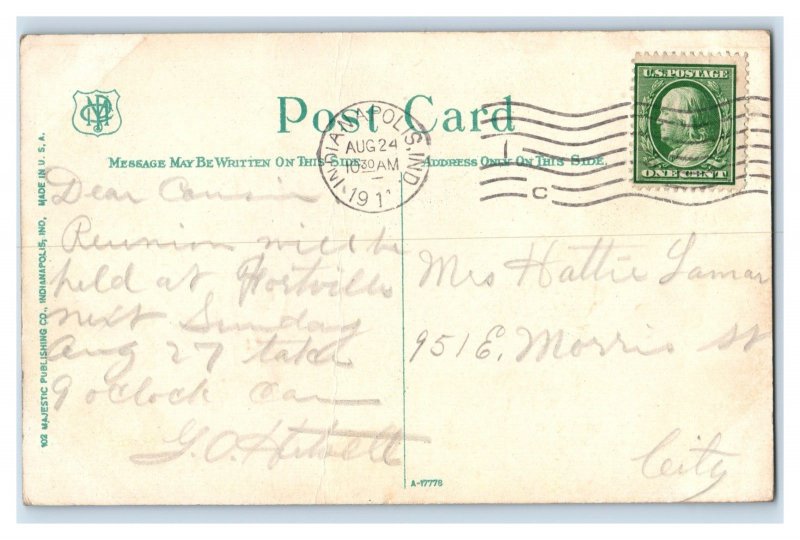 Post Card
MESSAGE MAY BE WRITTEN ON THIS SIDE.
ADDRESS ONLY ON THIS SIDE.
INDIANAPOLIS, IND.
AUG 24
10 30 AM
191
1
C
U.S. POSTAGE
ONE CENT
Dear Cousin
Reunion will be
held at Fortville
next Sunday
Aug 27 take
9 oclock car
G. O.
Mrs Hattie Lamar
951 E. Morris St
City
102 MAJESTIC PUBLISHING CO., INDIANAPOLIS, IND. MADE IN U. S. A.
A-17778